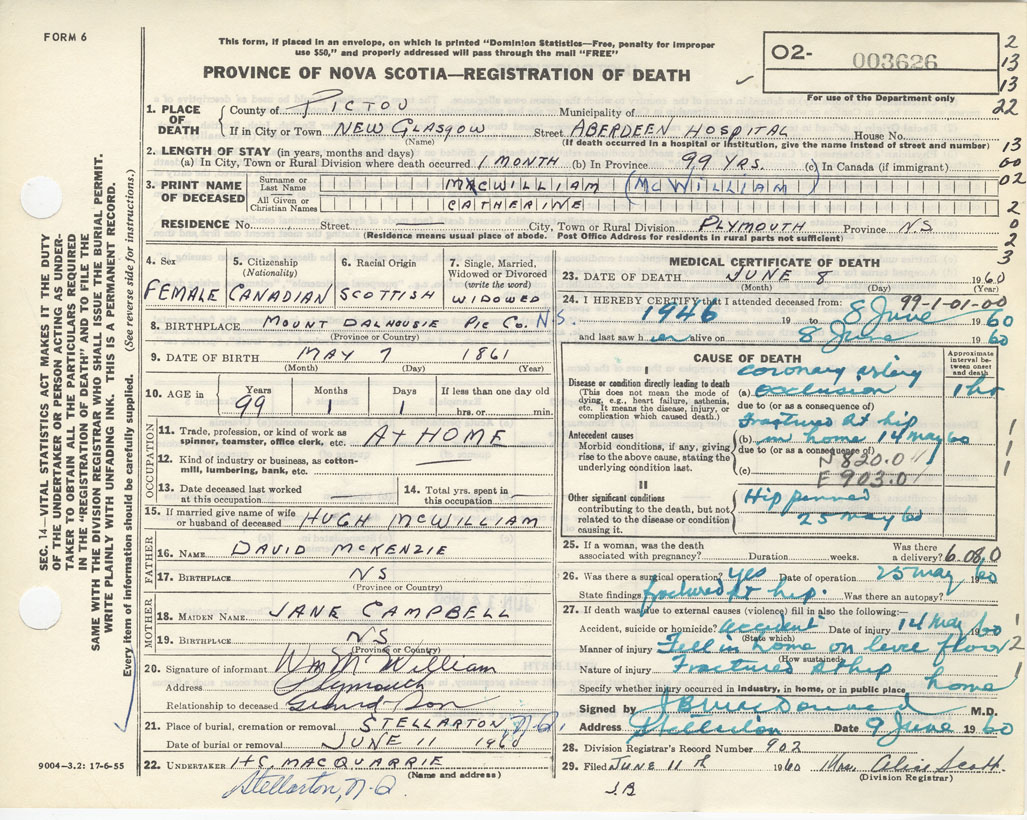 FORM 6
This form, if placed in an envelope, on which is printed "Dominion Statistics—Free, penalty for improper
use $50," and properly addressed will pass through the mail "FREE"
PROVINCE OF NOVA SCOTIA—REGISTRATION OF DEATH
02- 003626
For use of the Department only
2
13
13
22
13
60
02
2
0
2
3
1. PLACE OF DEATH County of PICTOU Municipality of
If in City or Town NEW GLASGOW Street ABERDEEN HOSPITAL House No.
(Name) (If death occurred in a hospital or institution, give the name instead of street and number)
2. LENGTH OF STAY (in years, months and days)
(a) In City, Town or Rural Division where death occurred 1 MONTH (b) In Province 99 YRS. (c) In Canada (if immigrant)
3. PRINT NAME OF DECEASED Surname or Last Name MACWILLIAM (McWILLIAM)
All Given or Christian Names CATHERINE
RESIDENCE No. Street — City, Town or Rural Division PLYMOUTH Province NS
(Residence means usual place of abode. Post Office Address for residents in rural parts not sufficient)
4. Sex FEMALE
5. Citizenship (Nationality) CANADIAN
6. Racial Origin SCOTTISH
7. Single, Married, Widowed or Divorced (write the word) WIDOWED
8. BIRTHPLACE MOUNT DALHOUSIE PIC CO. N.S.
(Province or Country)
9. DATE OF BIRTH MAY 7 1861
(Month) (Day) (Year)
10. AGE in Years 99 Months 1 Days 1 If less than one day old hrs. or min.
OCCUPATION
11. Trade, profession, or kind of work as spinner, teamster, office clerk, etc. AT HOME
12. Kind of industry or business, as cotton-mill, lumbering, bank, etc. —
13. Date deceased last worked at this occupation —
14. Total yrs. spent in this occupation —
15. If married give name of wife or husband of deceased HUGH McWILLIAM
FATHER
16. NAME DAVID McKENZIE
17. BIRTHPLACE NS
(Province or Country)
MOTHER
18. MAIDEN NAME JANE CAMPBELL
19. BIRTHPLACE NS
(Province or Country)
20. Signature of informant Wm McWilliam
Address Plymouth
Relationship to deceased Grand Son
21. Place of burial, cremation or removal STELLARTON N.S.
Date of burial or removal JUNE 11 1960
22. UNDERTAKER H C MACQUARRIE
(Name and address)
Stellarton, N.S.
MEDICAL CERTIFICATE OF DEATH
23. DATE OF DEATH JUNE 8 1960
(Month) (Day) (Year)
24. I HEREBY CERTIFY that I attended deceased from: 99-1-01-00
1946 19 to 8 June 1960
and last saw h er alive on 8 June 1960
CAUSE OF DEATH
Approximate interval between onset and death
I
Disease or condition directly leading to death
(This does not mean the mode of dying, e.g., heart failure, asthenia, etc. It means the disease, injury, or complication which caused death.)
coronary artery
(a) occlusion 1 hr
due to (or as a consequence of)
Antecedent causes
Morbid conditions, if any, giving rise to the above cause, stating the underlying condition last.
Fractured rt hip
(b) in home 14 may 60
due to (or as consequence of)
N 820.0
(c) E 903.0
II
Other significant conditions
contributing to the death, but not related to the disease or condition causing it.
Hip pinned
25 may 60
25. If a woman, was the death associated with pregnancy? Duration weeks. Was there a delivery?
26. Was there a surgical operation? yes Date of operation 25 may 1960
State findings fractured rt hip. Was there an autopsy?
27. If death was due to external causes (violence) fill in also the following:—
Accident, suicide or homicide? accident Date of injury 14 May 1960
(State which)
Manner of injury Fell in home on level floor
(How sustained)
Nature of injury Fractured rt hip
Specify whether injury occurred in industry, in home, or in public place home
Signed by M.D.
Address Stellarton Date 9 June 1960
28. Division Registrar's Record Number 902
29. Filed JUNE 11th 1960 Mrs. Alice Scott
(Division Registrar)
J.B
9004-3.2: 17-6-55
SEC. 14—VITAL STATISTICS ACT MAKES IT THE DUTY
OF THE UNDERTAKER OR PERSON ACTING AS UNDER-
TAKER TO OBTAIN ALL THE PARTICULARS REQUIRED
IN THE "REGISTRATION OF DEATH" AND TO FILE THE
SAME WITH THE DIVISION REGISTRAR WHO SHALL ISSUE THE BURIAL PERMIT.
WRITE PLAINLY WITH UNFADING INK. THIS IS A PERMANENT RECORD.
Every item of information should be carefully supplied. (See reverse side for instructions.)